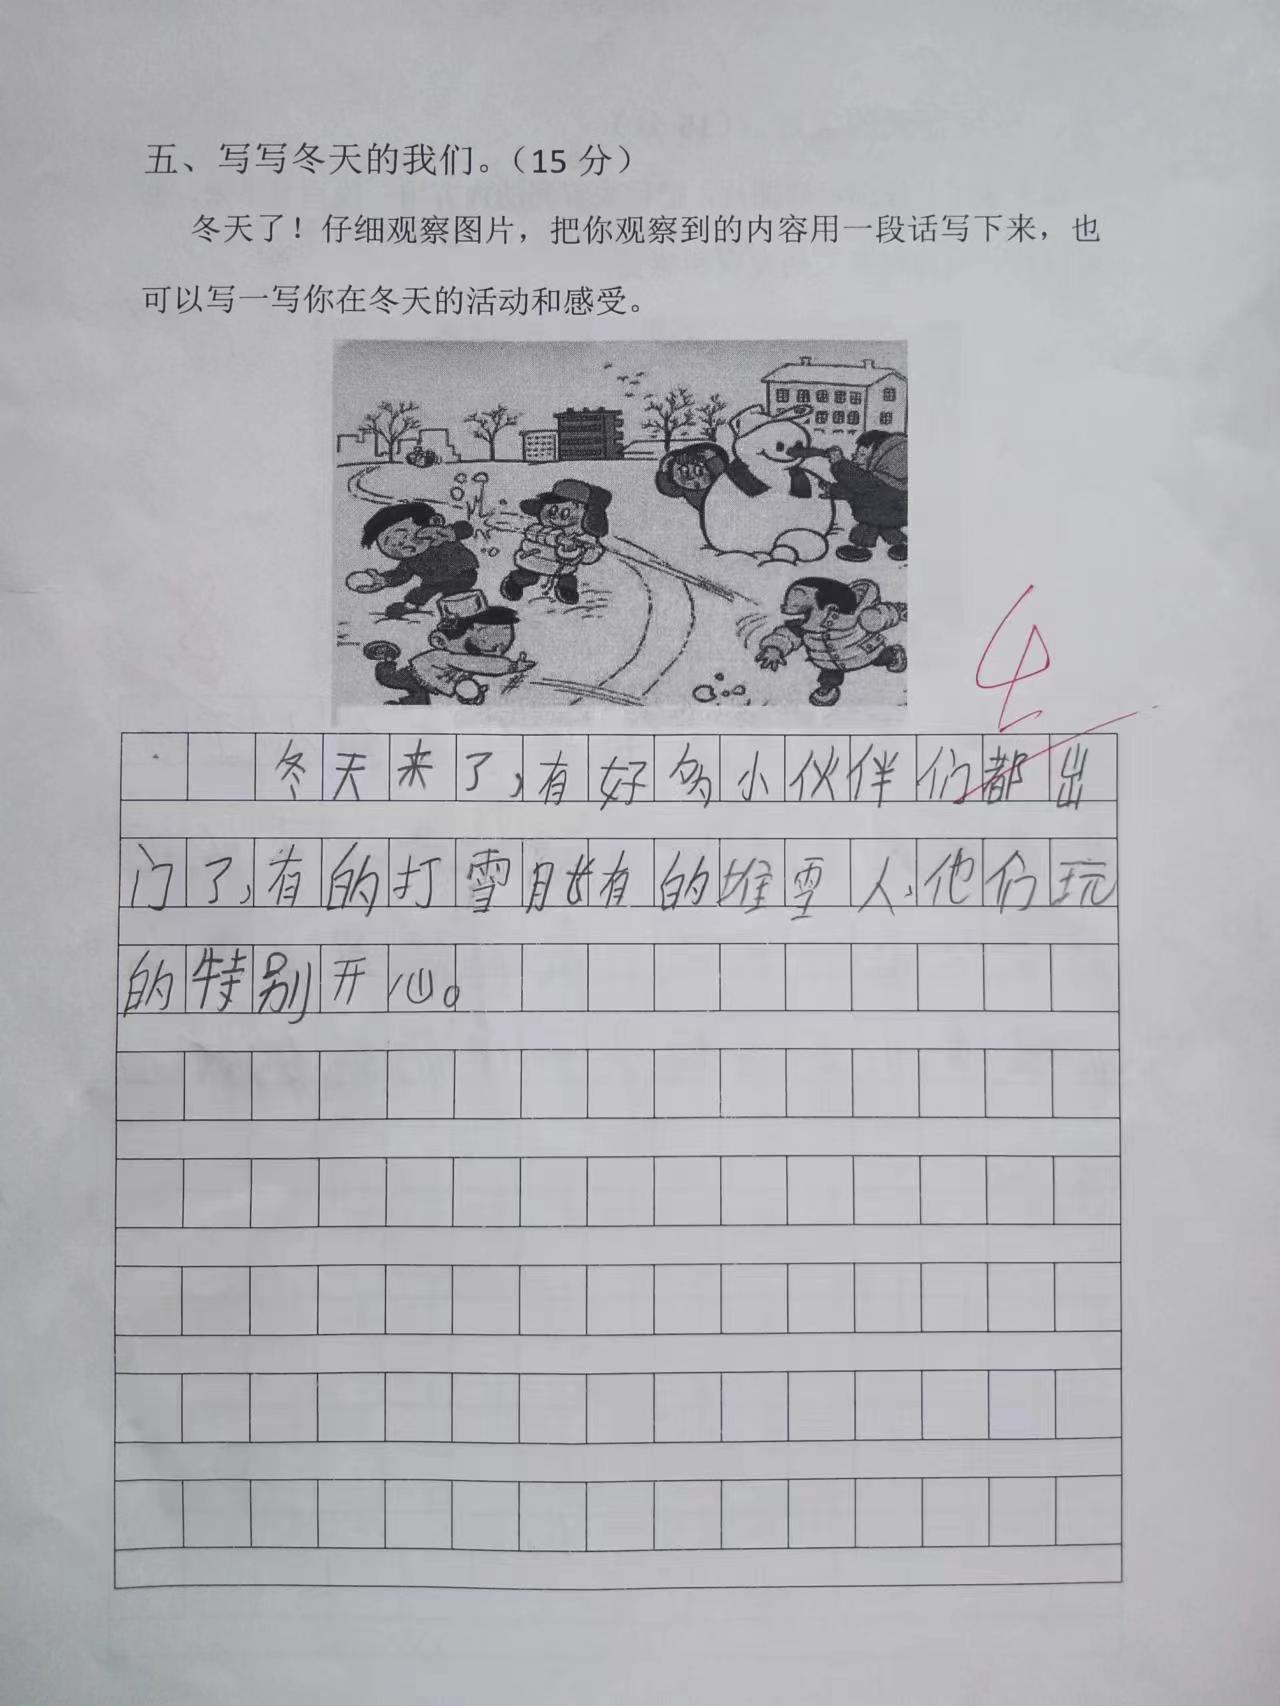 五、写写冬天的我们。（15 分）
冬天了！仔细观察图片，把你观察到的内容用一段话写下来，也
可以写一写你在冬天的活动和感受。
4
冬天来了，有好多小伙伴们都出
门了，有的打雪有的堆雪人，他们玩
的特别开心。